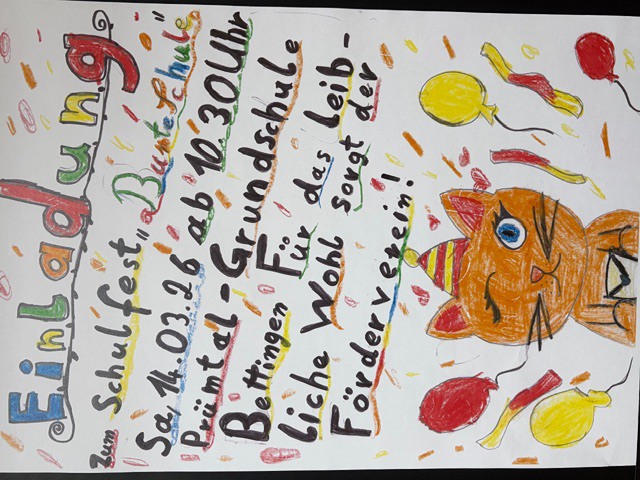 Einladung
zum Schulfest „Bunte Schule"
Sa, 14.03.26 ab 10.30 Uhr
Prümtal-Grundschule
Bettingen Für das leib-
liche Wohl sorgt der
Förderverein!